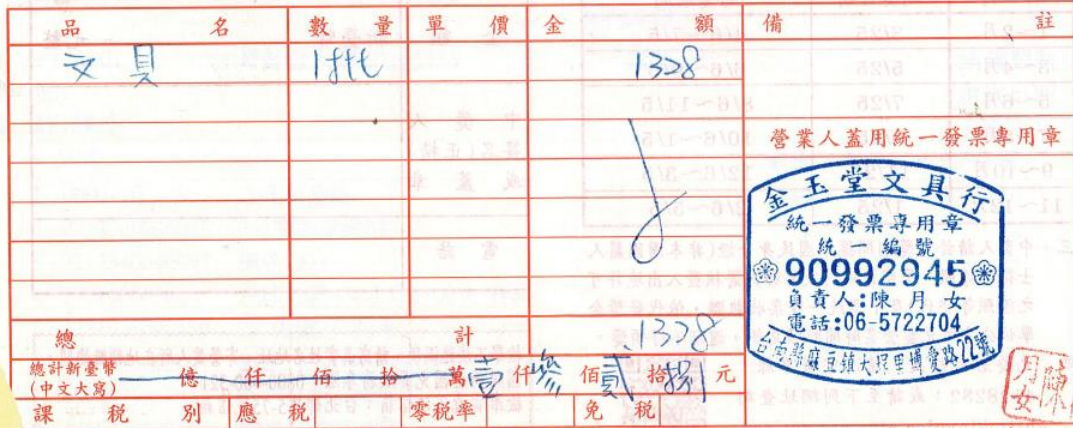 品名 數量 單價 金額 備註
文具 1批 1328
營業人蓋用統一發票專用章
金玉堂文具行
統一發票專用章
統一編號
90992945
負責人:陳月女
電話:06-5722704
台南縣麻豆鎮大埕里博愛路22號
總計 1328
總計新臺幣(中文大寫) 億 仟 佰 拾 萬 壹 仟 參 佰 貳 拾 捌 元
陳月女
課稅別 應稅 零稅率 免稅